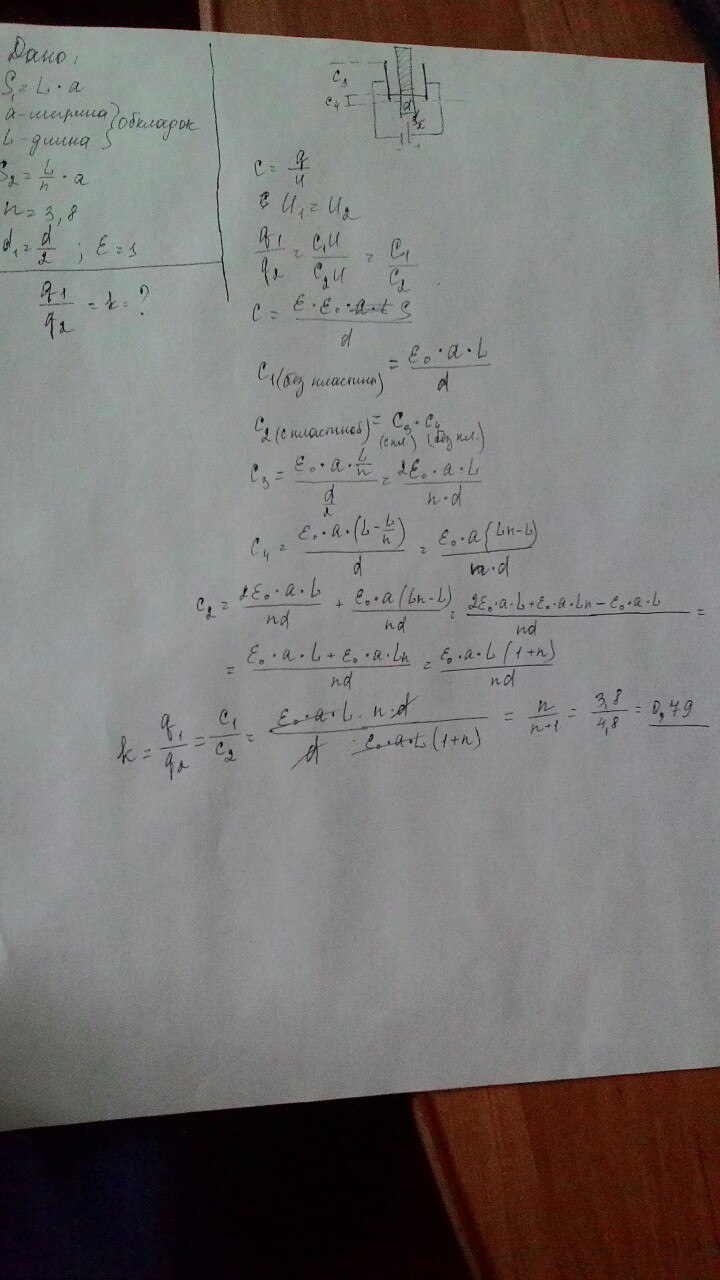 Дано:
S₁ = L · a
a - ширина } обкладок
L - длина
S₂ = L/n · a
n = 3,8
d₁ = d/2 ; ε = 1
q₁/q₂ = k = ?
C₃
C₄
C = q/U
U₁ = U₂
q₁/q₂ = C₁U/C₂U = C₁/C₂
C = ε · ε₀ · S/d
C₁(без пластины) = ε₀ · a · L/d
C₂(с пластиной) = C₃ + C₄
(с пл.) (без пл.)
C₃ = ε₀ · a · L/n / d/2 = 2ε₀ · a · L/n · d
C₄ = ε₀ · a · (L - L/n)/d = ε₀ · a (Ln - L)/n · d
C₂ = 2ε₀ · a · L/nd + ε₀ · a (Ln - L)/nd = 2ε₀ · a · L + ε₀ · a · Ln - ε₀ · a · L/nd =
= ε₀ · a · L + ε₀ · a · Ln/nd = ε₀ · a · L (1+n)/nd
k = q₁/q₂ = C₁/C₂ = ε₀ · a · L · n · d/d · ε₀ · a · L (1+n) = n/n+1 = 3,8/4,8 = 0,79